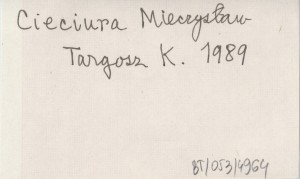 Cieciura Mieczysław
Targosz K. 1989
BT/053/4964